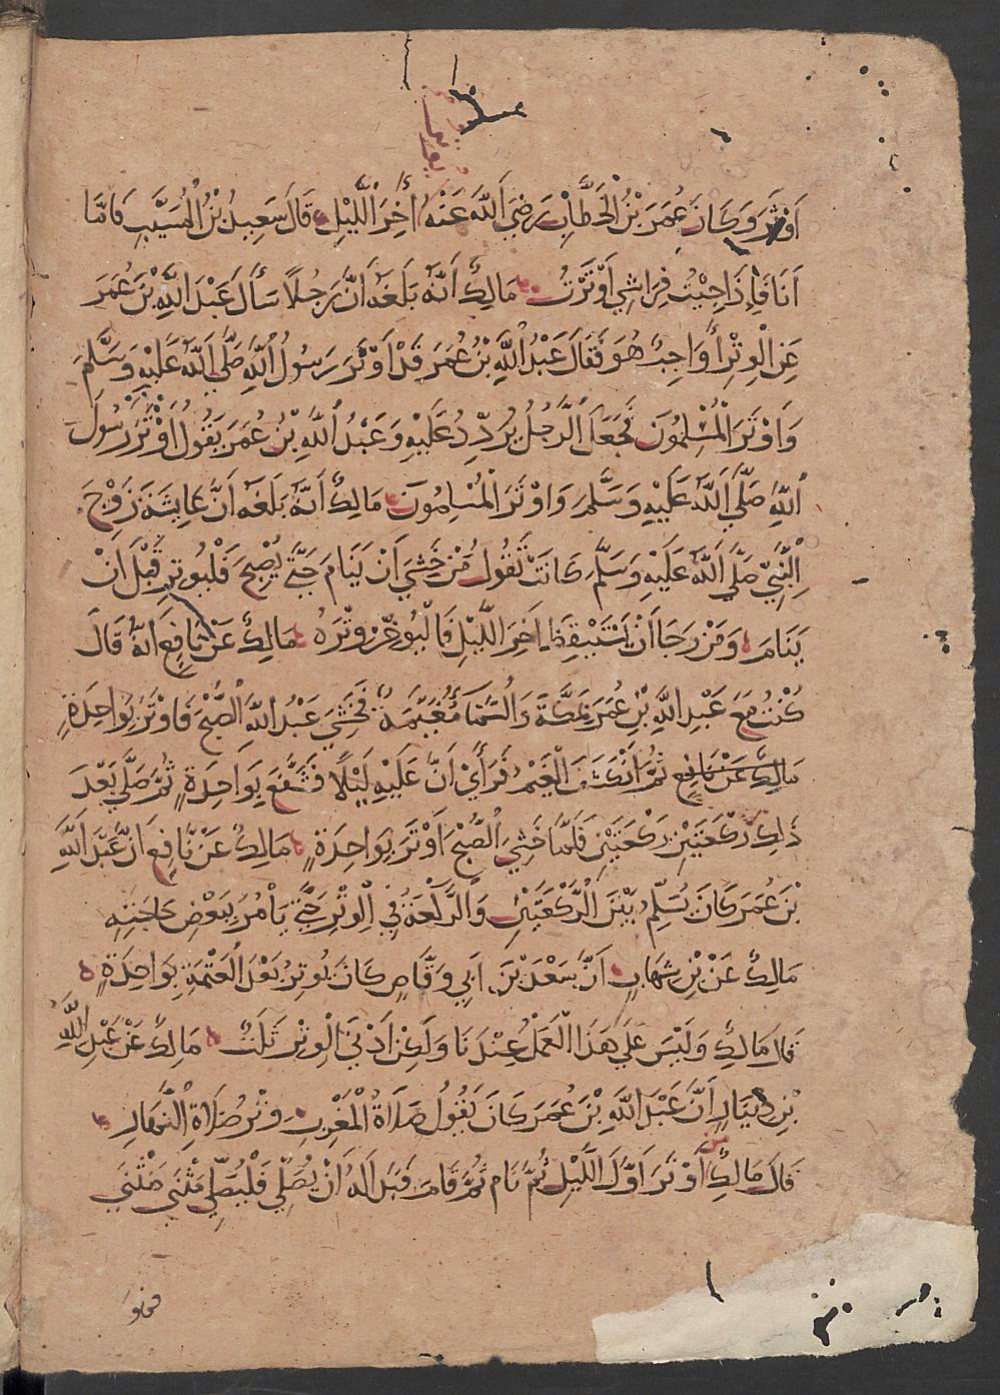 اَوْتَرَ وَكَانَ عُمَرَ بْنُ الْخَطَّابْ رَضِيَ اَللَّهَ عَنْهُ أَخِرَ اللَّيْلِ قَالَ سَعِيدُ بْنُ الْمُسَيَّبِ فَامَّا
اَنَا فَاِذَا جِيْتُ فِرَاشِي اَوْتَرْتُ مَالِكُ اَنَّهُ بَلَغَهُ اَنَّ رَجُلًا سَأَلَ عَبْدَ اللَّهِ بْنَ عُمَرَ
عَنِ الْوِتْرِ أَوَاجِبٌ هُوَ فَقَالَ عَبْدُ اللَّهِ بْنُ عُمَرَ قَدْ اَوْتَرَ رَسُولُ اللَّهِ صَلَّي اَللَّهُ عَلَيْهِ وَسَلَّمَ
وَاَوْتَرَ الْمُسْلِمُونَ فَجَعَلَ الرَّجُلُ يُرَدِّدُ عَلَيْهِ وَعَبْدُ اللَّهِ بْنُ عُمَرَ يَقُولُ اَوْتَرَ رَسُولُ
اُللَّهِ صَلَّي اَللَّهُ عَلَيْهِ وَسَلَّمَ وَاَوْتَرَ الْمُسْلِمُونَ مَالِكُ اَنَّهُ بَلَغَهُ اَنَّ عَايِشَةَ زَوْجَ
اِلنَّبِيِّ صَلَّي اَللَّهُ عَلَيْهِ وَسَلَّمَ كَانَتْ تَقُولُ مَنْ خَشِيَ اَنْ يَنَامَ حَتَّي يُصْبِحَ فَلْيُوتِرْ قَبْلَ اَنْ
يَنَامَ وَمَنْ رَجَا اَنْ يَسْتَيْقِظَ اَخِرَ اللَّيْلِ فَالْيُوخِّرْ وِتْرَهُ مَالِكُ عَنْ نَافِعٍ اَنَّهُ قَالَ
كُنْتُ مَعَ عَبْدِ اللَّهِ بْنِ عُمَرَ بِمَكَّةَ وَالسَّمَآءُ مُغَيِّمَةٌ فَخَشِيَ عَبْدُ اللَّهِ الصُّبْحَ فَاَوْتَرَ بِوَاحِدَةٍ
مَالِكُ عَنْ نَافِعٍ ثُمَّ اَنْكَشَفَ الْغَيْمُ فَرَأَيَ اَنَّ عَلَيْهِ لَيْلًا فَشَفَعَ بِوَاحِدَةٍ ثُمَّ صَلَّي بَعْدَ
ذَلِكَ رَكْعَتَيْنِ رَكْعَتَيْنِ فَلَمَّا خَشِيَ اُلصُّبْحَ اَوْتَرَ بِوَاحِدَةٍ مَالِكُ عَنْ نَافِعٍ اَنَّ عَبْدَ اَللَّهِ
بْنَ عُمَرَ كَانَ يُسَلِّمُ بَيْنَ الرَّكْعَتَيْنِ وَالرَّكْعَةِ فِي اِلْوِتْرِ حَتَّي يَاْمُرَ بِبَعْضِ حَاجَتِهِ
مَالِكُ عَنْ بْنِ شِهَابٍ اَنَّ سَعْدَ بْنَ اَبِي وَقَّاصٍ كَانَ يُوتِرُ بَعْدَ الْعَتْمَةِ بِوَاحِدَةٍ
قَالَ مَالِكُ وَلَيْسَ عَلَي هَذَا الْعَمَلُ عِنْدَنَا وَلَكِنْ اَدْنَي الْوِتْرِ ثَلَثٌ مَالِكُ عَنْ عَبْدِ اللَّهِ
بْنِ دِينَارٍ اَنَّ عَبْدَ اَللَّهِ بْنَ عُمَرَ كَانَ يَقُولُ صَلَاةُ الْمَغْرِبِ وِتْرُ صَلَاةِ النَّهَارِ
قَالَ مَالِكُ مَنْ اَوْتَرَ اَوَّلَ اللَّيْلِ ثُمَّ نَامَ ثُمَّ قَامَ فَبَدَالَهُ اَنْ يُصَلِّي فَلْيُصَلِّي مَثْنَي مَثْنَي